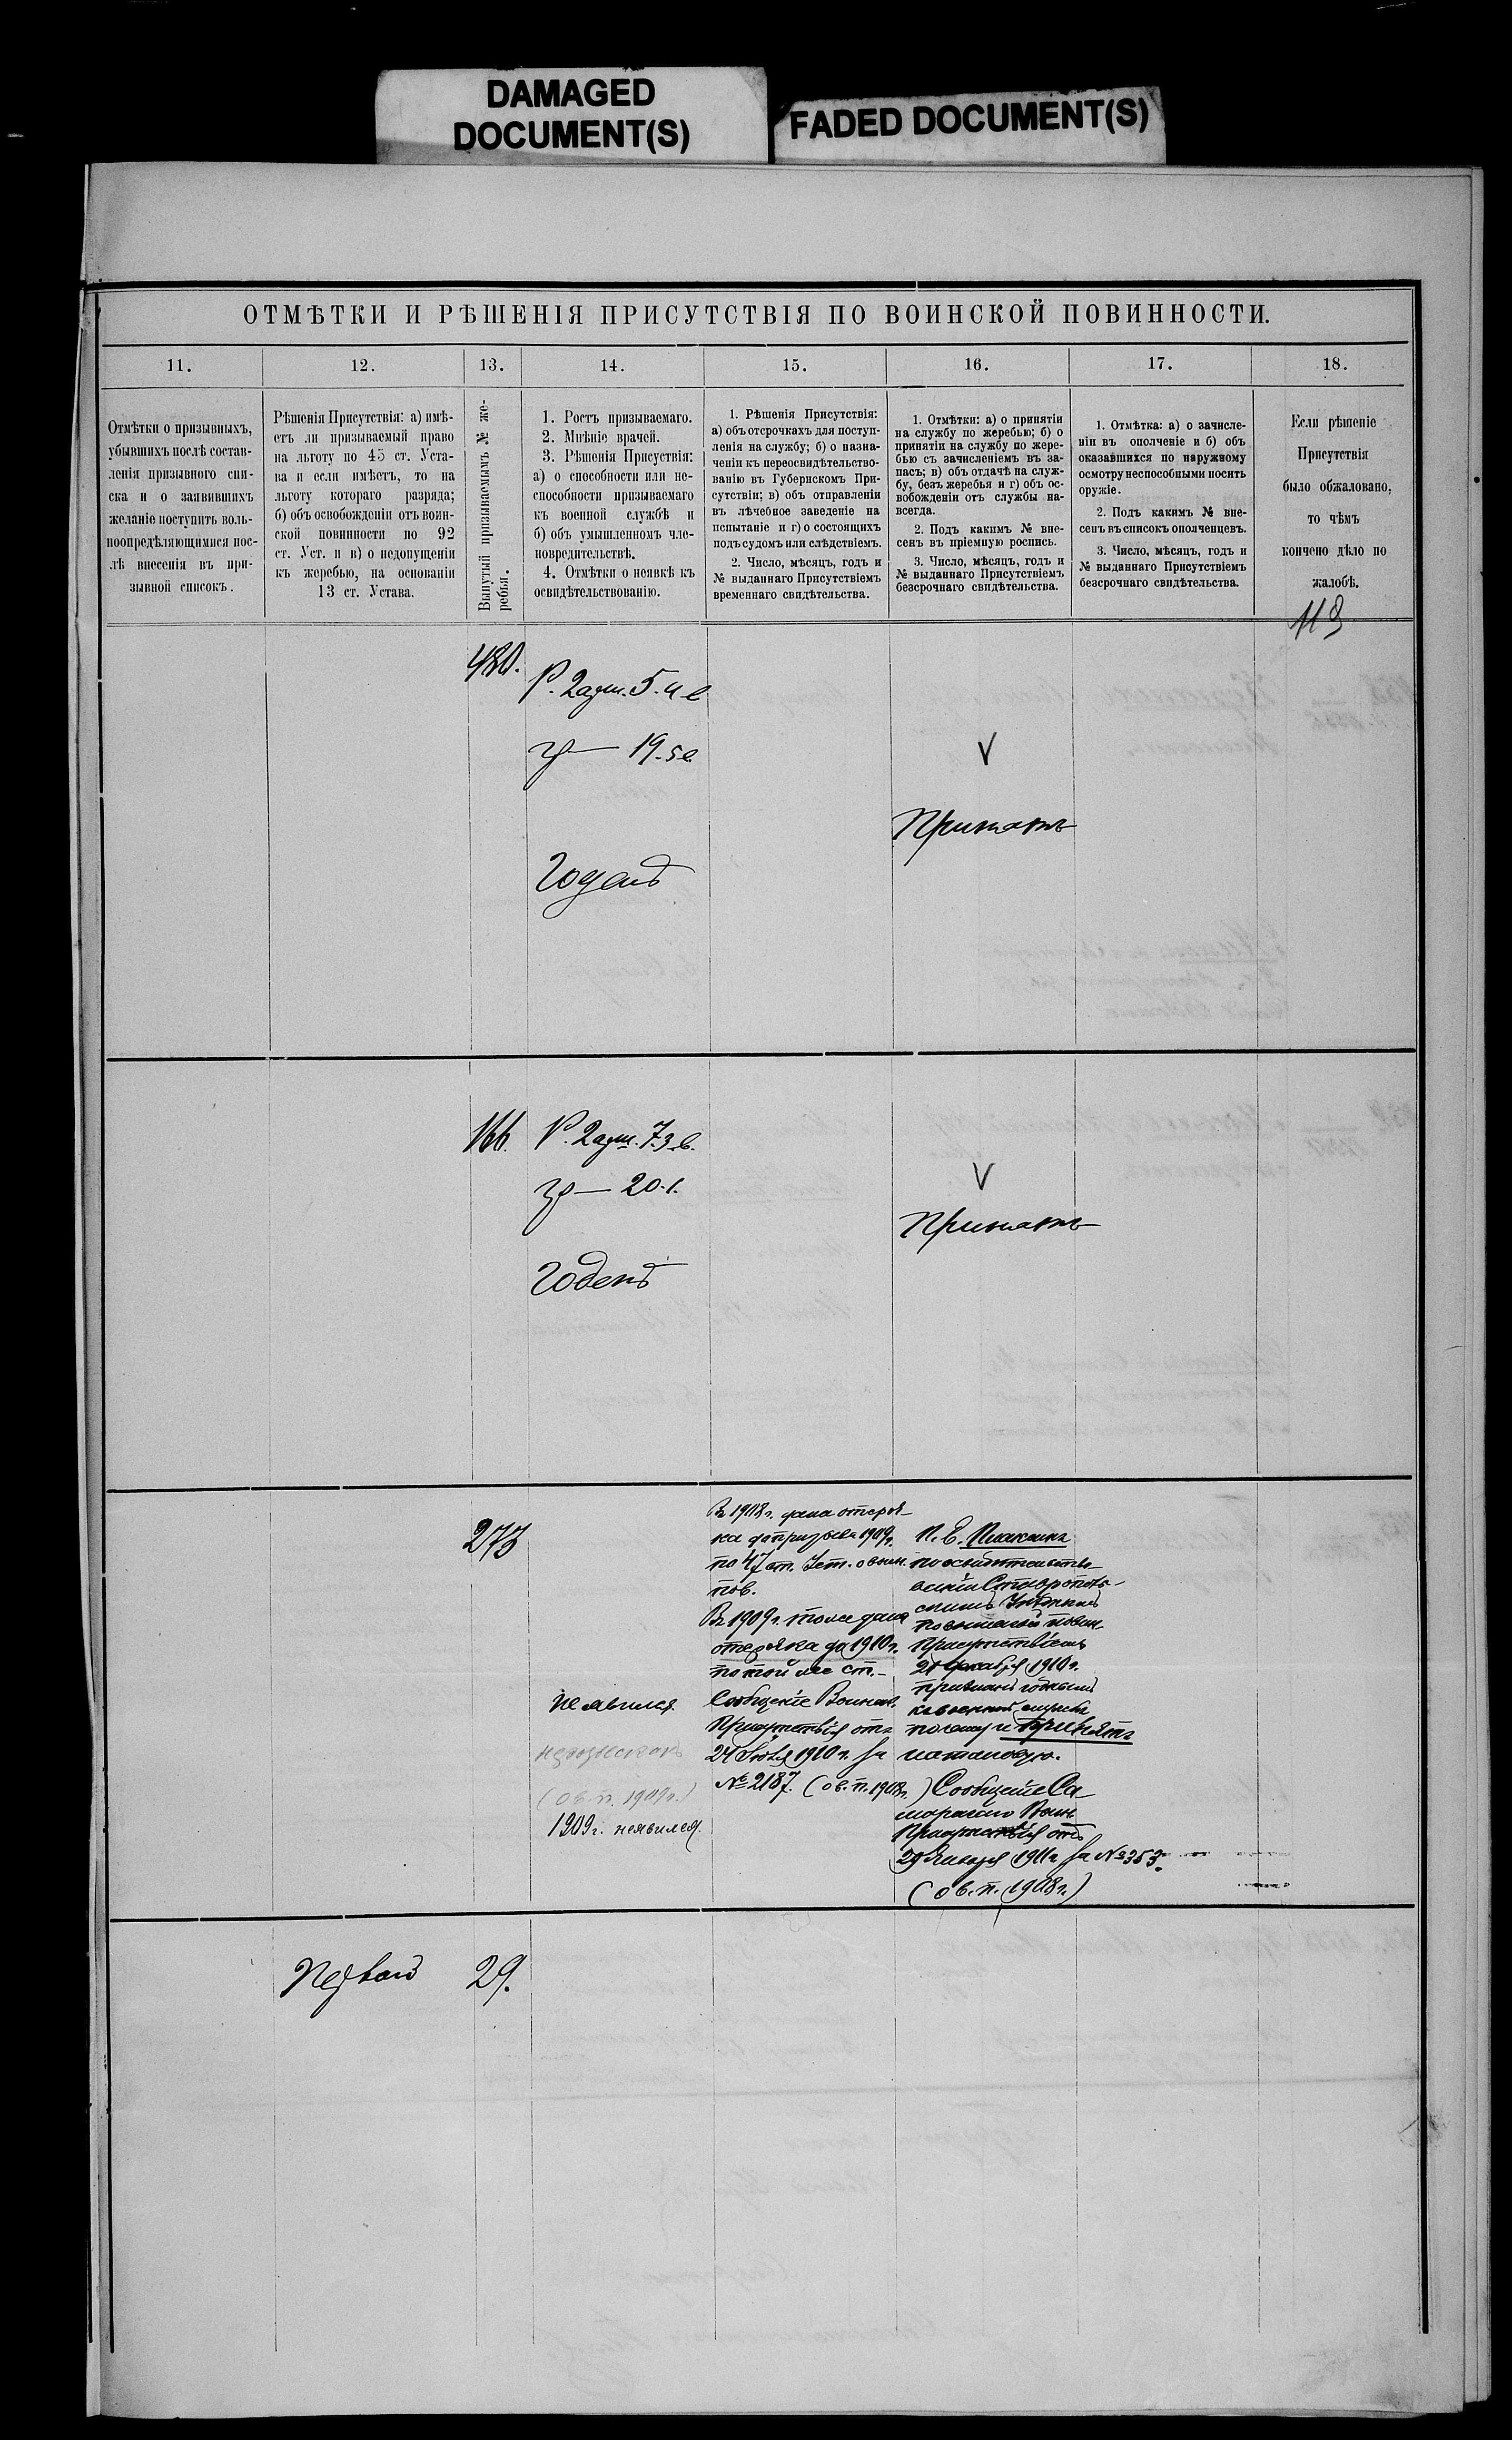 DAMAGED
DOCUMENT(S)
FADED DOCUMENT(S)
ОТМѢТКИ И РѢШЕНІЯ ПРИСУТСТВІЯ ПО ВОИНСКОЙ ПОВИННОСТИ.
11.
12.
13.
14.
15.
16.
17.
18.
Отмѣтки о призывныхъ,
убывшихъ послѣ состав-
ленія призывного спи-
ска и о заявившихъ
желаніе поступить воль-
ноопредѣляющимися пос-
лѣ внесенія въ при-
зывной списокъ.
Рѣшенія Присутствія: а) имѣ-
етъ ли призываемый право
на льготу по 45 ст. Уста-
ва и если имѣетъ, то на
льготу котораго разряда;
б) объ освобожденіи отъ воин-
ской повинности по 92
ст. Уст. и в) о недопущеніи
къ жеребью, на основаніи
13 ст. Устава.
Вынутый призываемымъ № же-
ребья.
1. Ростъ призываемаго.
2. Мнѣніе врачей.
3. Рѣшенія Присуствія:
а) о способности или не-
способности призываемаго
къ военной службѣ и
б) объ умышленномъ чле-
новредительствѣ.
4. Отмѣтки о неявкѣ къ
освидѣтельствованію.
1. Рѣшенія Присутствія:
а) объ отсрочкахъ для поступ-
ленія на службу; б) о назна-
ченіи къ переосвидѣтельство-
ванію въ Губернскомъ При-
сутствіи; в) объ отправленіи
въ лѣчебное заведеніе на
испытаніе и г) о состоящихъ
подъ судомъ или слѣдствіемъ.
2. Число, мѣсяцъ, годъ и
№ выданнаго Присутствіемъ
временнаго свидѣтельства.
1. Отмѣтки: а) о принятіи
на службу по жеребью; б) о
принятіи на службу по жере-
бью съ зачисленіемъ въ за-
пасъ; в) объ отдачѣ на служ-
бу, безъ жеребья и г) объ ос-
вобожденіи отъ службы на-
всегда.
2. Подъ какимъ № вне-
сенъ въ пріемную роспись.
3. Число, мѣсяцъ, годъ и
№ выданнаго Присутствіемъ
безсрочнаго свидѣтельства.
1. Отмѣтка: а) о зачисле-
ніи въ ополченіе и б) объ
оказавшихся по наружному
осмотру неспособными носить
оружіе.
2. Подъ какимъ № вне-
сенъ въ списокъ ополченцевъ.
3. Число, мѣсяцъ, годъ и
№ выданнаго Присутствіемъ
безсрочнаго свидѣтельства.
Если рѣшеніе
Присутствія
было обжаловано,
то чѣмъ
кончено дѣло по
жалобѣ.
480.
Р. 2 арш. 5. 4 в
гр — 19. 5 в.
Годенъ
V
Принятъ
166.
Р. 2 арш. 7. 3 в.
гр — 20. 1.
Годенъ
V
Принятъ
273
неявился.
(Ов. п. 1909 г.)
1909 г. неявился.
Въ 1908 г. дана отсроч-
ка до призыва 1909 г.
по 47 ст. Уст. о воин.
пов.
Въ 1909 г. тоже дана
отсрочка до 1910 г.
по той же ст.-
Сообщеніе Воинск.
Присутствія отъ
1910 г. за
№ 2187. (ов. п. 1908 г.)
по освидѣтельство-
ваніи Ставрополь-
скимъ Уѣзднымъ
по воинской повин.
Присутствіемъ
21 декабря 1910 г.
признанъ годнымъ
къ военной службѣ
почему и принятъ
Сообщеніе Са-
марскаго Воин.
Присутствія отъ
29 Января 1911 г за № 353.
(ов. п. 1908 г.)
Первый
29.